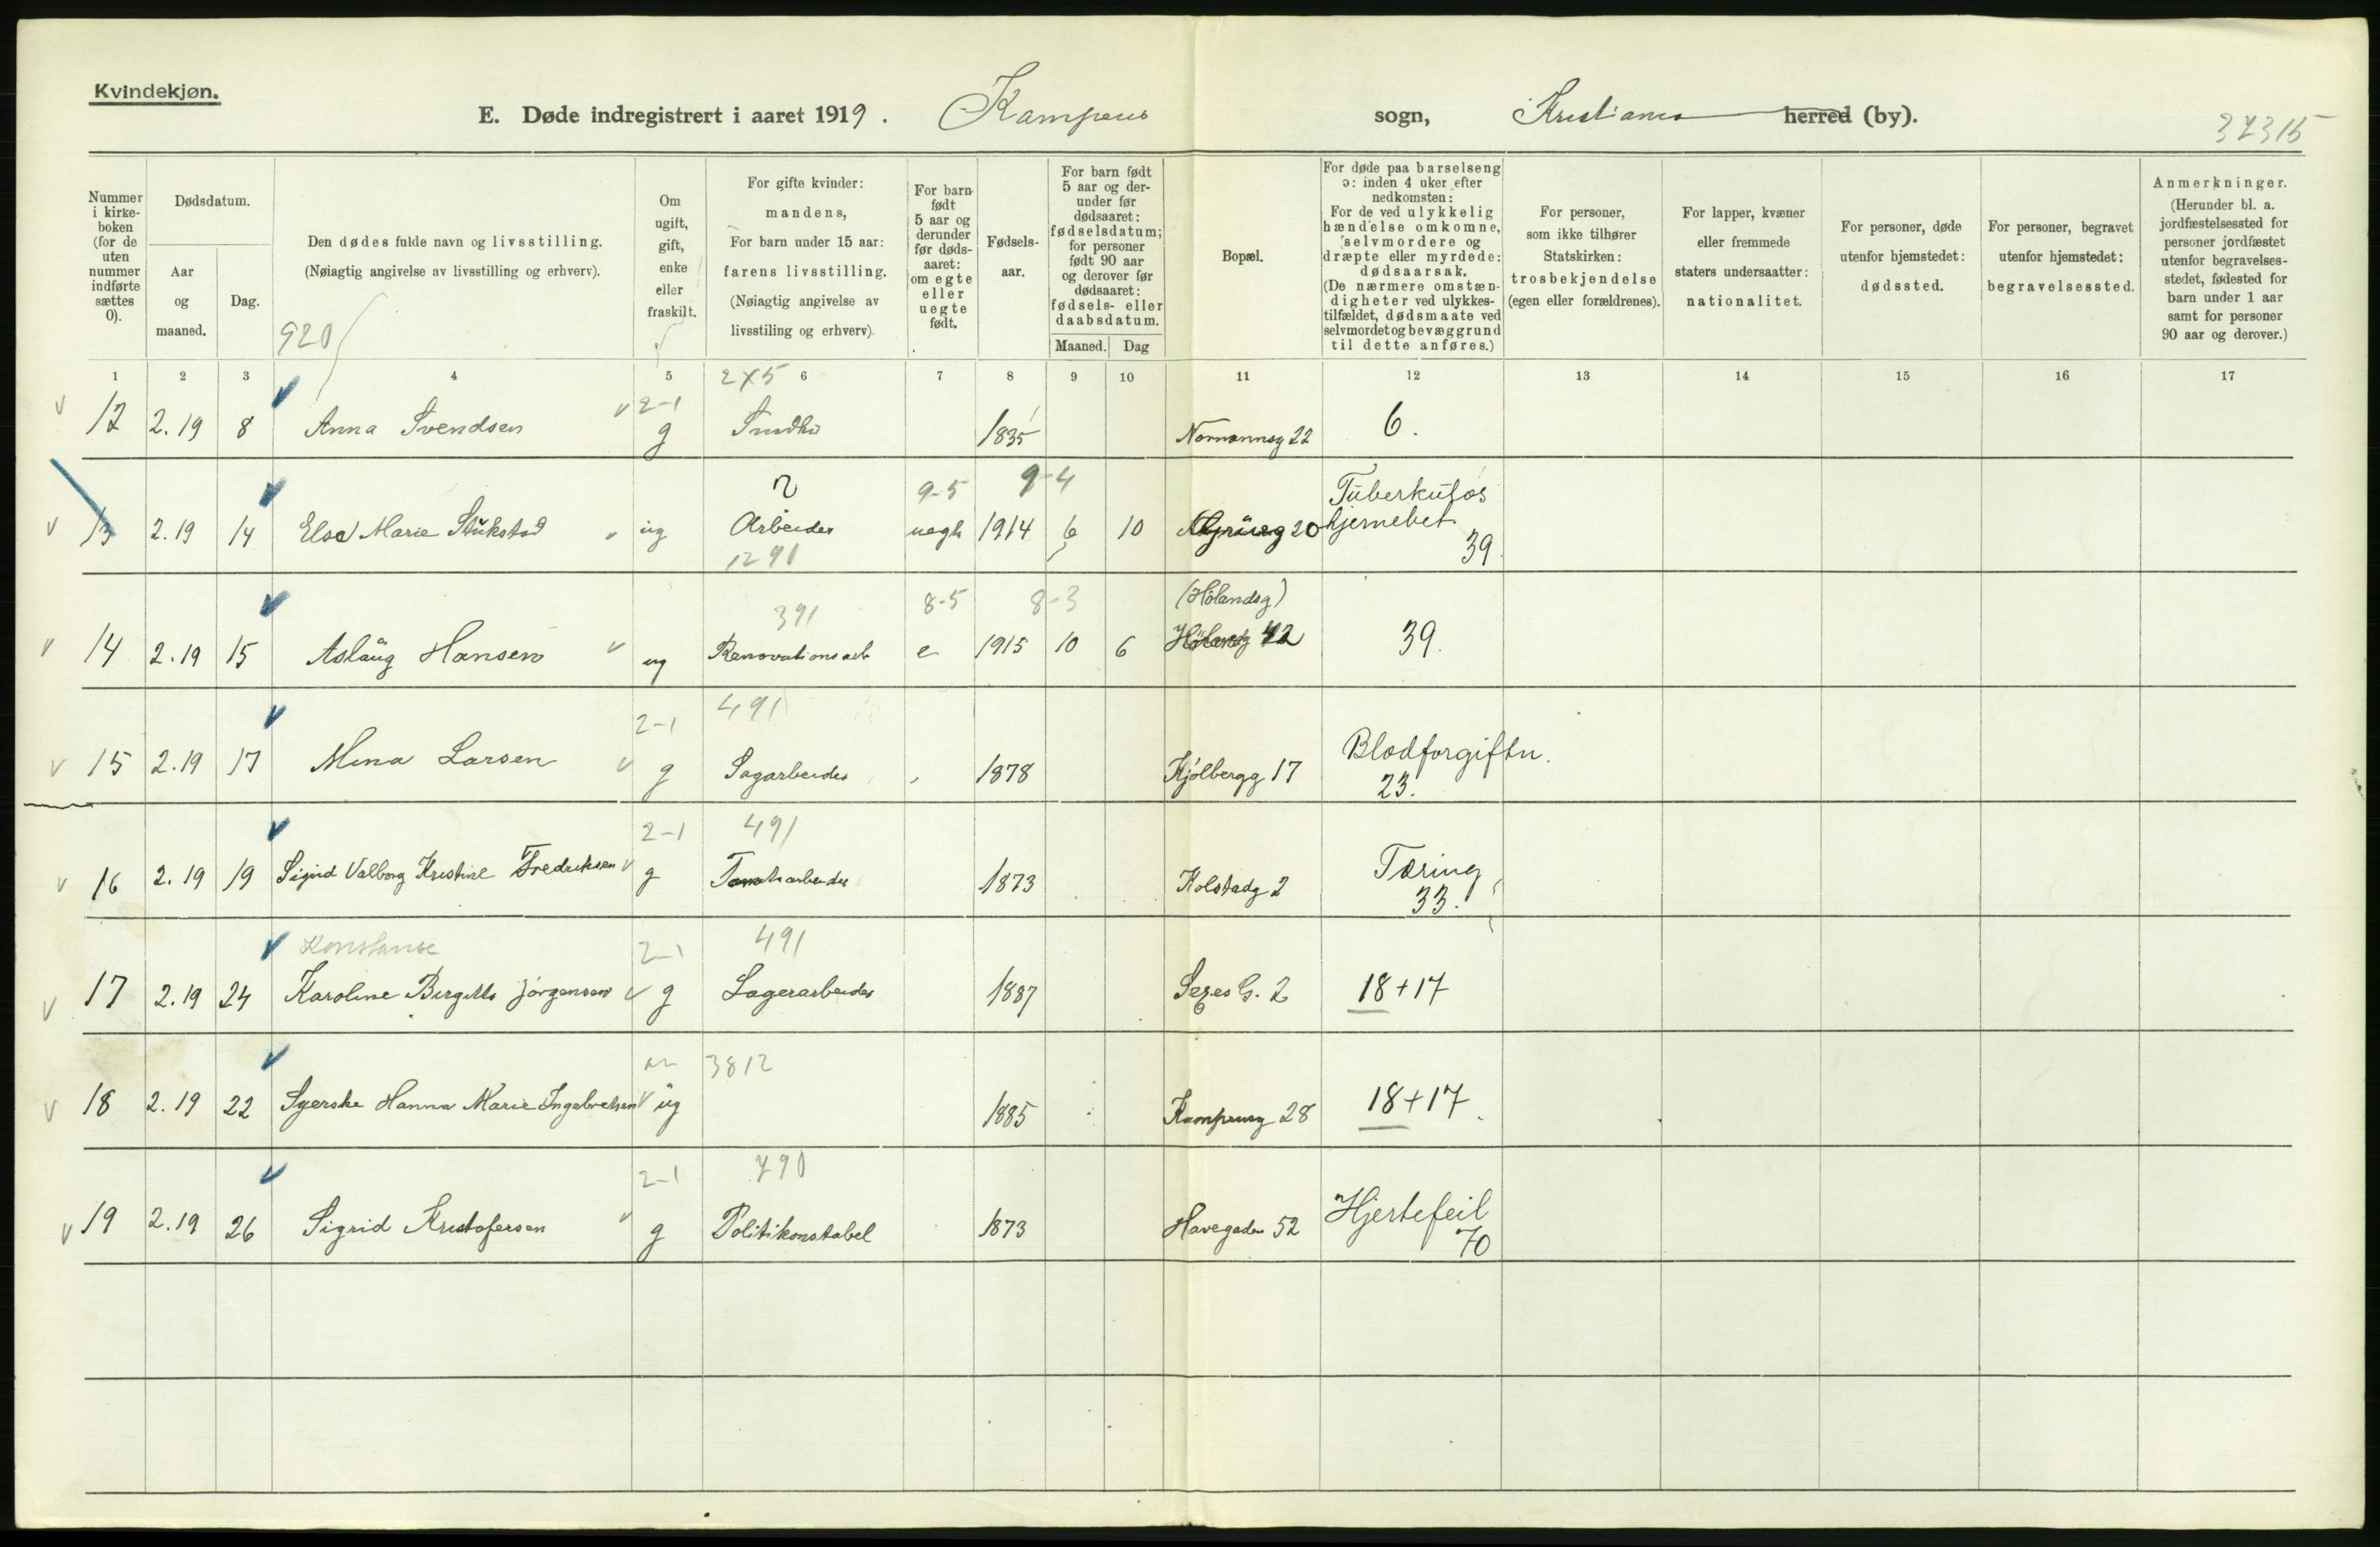 Kvindekjøn.
E. Døde indregistrert i aaret 1919. Kampens sogn, Kristiania herred (by).
37315
Nummer i kirke-boken (for de uten nummer indførte sættes 0).
Dødsdatum.
Aar og maaned.
Dag.
Den dødes fulde navn og livsstilling.
(Nøiagtig angivelse av livsstilling og erhverv).
920
Om ugift, gift, enke eller fraskilt.
For gifte kvinder: mandens,
For barn under 15 aar: farens livsstilling.
(Nøiagtig angivelse av livsstiling og erhverv).
For barn født 5 aar og derunder før døds-aaret: om egte eller uegte født.
Fødsels-aar.
For barn født 5 aar og der-under før dødsaaret: fødselsdatum; for personer født 90 aar og derover før dødsaaret: fødsels- eller daabsdatum.
Maaned. Dag
Bopæl.
For døde paa barselseng ɔ: inden 4 uker efter nedkomsten:
For de ved ulykkelig hændelse omkomne, selvmordere og dræpte eller myrdede: dødsaarsak.
(De nærmere omstæn-digheter ved ulykkes-tilfældet, dødsmaate ved selvmordet og bevæggrund til dette anføres.)
For personer, som ikke tilhører Statskirken: trosbekjendelse (egen eller forældrenes).
For lapper, kvæner eller fremmede staters undersaatter: nationalitet.
For personer, døde utenfor hjemstedet: dødssted.
For personer, begravet utenfor hjemstedet: begravelsessted.
Anmerkninger.
(Herunder bl. a. jordfæstelsessted for personer jordfæstet utenfor begravelses-stedet, fødested for barn under 1 aar samt for personer 90 aar og derover.)
1 2 3 4 5 6 7 8 9 10 11 12 13 14 15 16 17
2-1 2x5
12 2.19 8 Anna Svendsen g 1835 Normannsg 22 6.
9-5 9-4
13 2.19 14 Elsa Marie Stukstad ug Arbeider uegte 1914 6 10 20 Tuberkuløs hjernebet. 39.
1291
391 8-5 8-3 (Hölandsg)
14 2.19 15 Aslaug Hansen ug Renovationsarb e 1915 10 6 Hölandg 42 39.
2-1 491
15 2.19 17 Mina Larsen g Sagarbeider 1878 Kjölbergg 17 Blodforgiftn. 23.
2-1 491
16 2.19 19 Sigrid Valborg Kristine Fredriksen g Tomtearbeider 1873 Kolstadg 2 Tæring 33.
Konstanse 2-1 491
17 2.19 24 Karoline Birgitte Jörgensen g Lagerarbeider 1887 Seges G. 2 18+17
3812
18 2.19 22 Syerske Hanna Marie Ingebretsen ug 1885 Kampensg 28 18+17.
2-1 790
19 2.19 26 Sigrid Kristofersen g Politikonstabel 1873 Havegaden 52 Hjertefeil 70